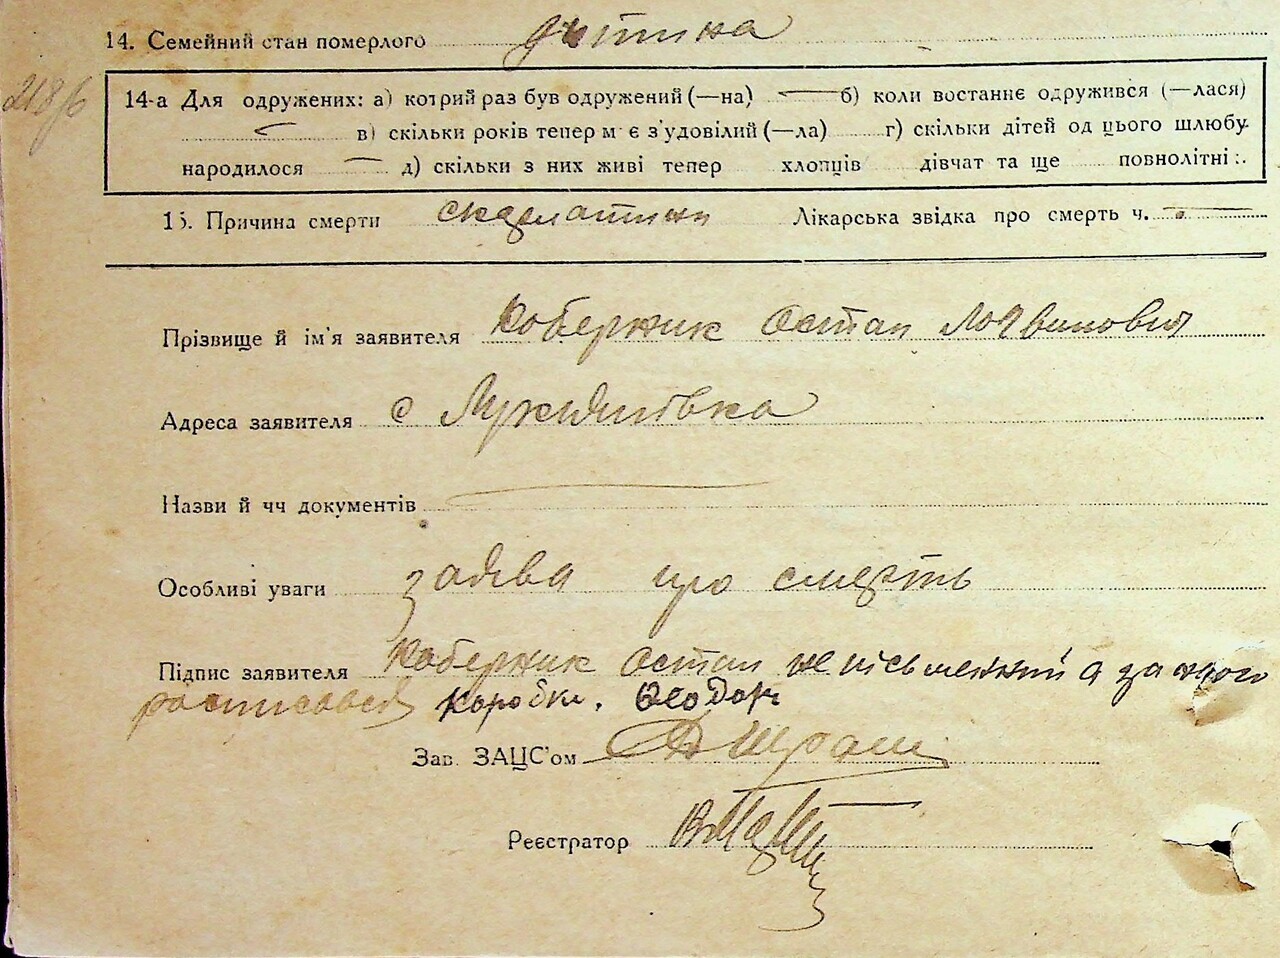 14. Семейний стан померлого дитина
218/6
14-а Для одружених: а) котрий раз був одружений (—на) — б) коли востаннє одружився (—лася)
— в) скільки років тепер м є з'удовілий (—ла) г) скільки дітей од цього шлюбу
народилося — д) скільки з них живі тепер хлопців дівчат та ще повнолітні :.
15. Причина смерти скарлатини Лікарська звідка про смерть ч. —
Прізвище й ім'я заявителя Коберник Остап Логвинович
Адреса заявителя с Лукашівка
Назви й чч документів —
Особливі уваги заява про смерть
Підпис заявителя Коберник Остап неписьменний а за нього
росписався Коробка. Феодор
Зав. ЗАЦС'ом
Реєстратор